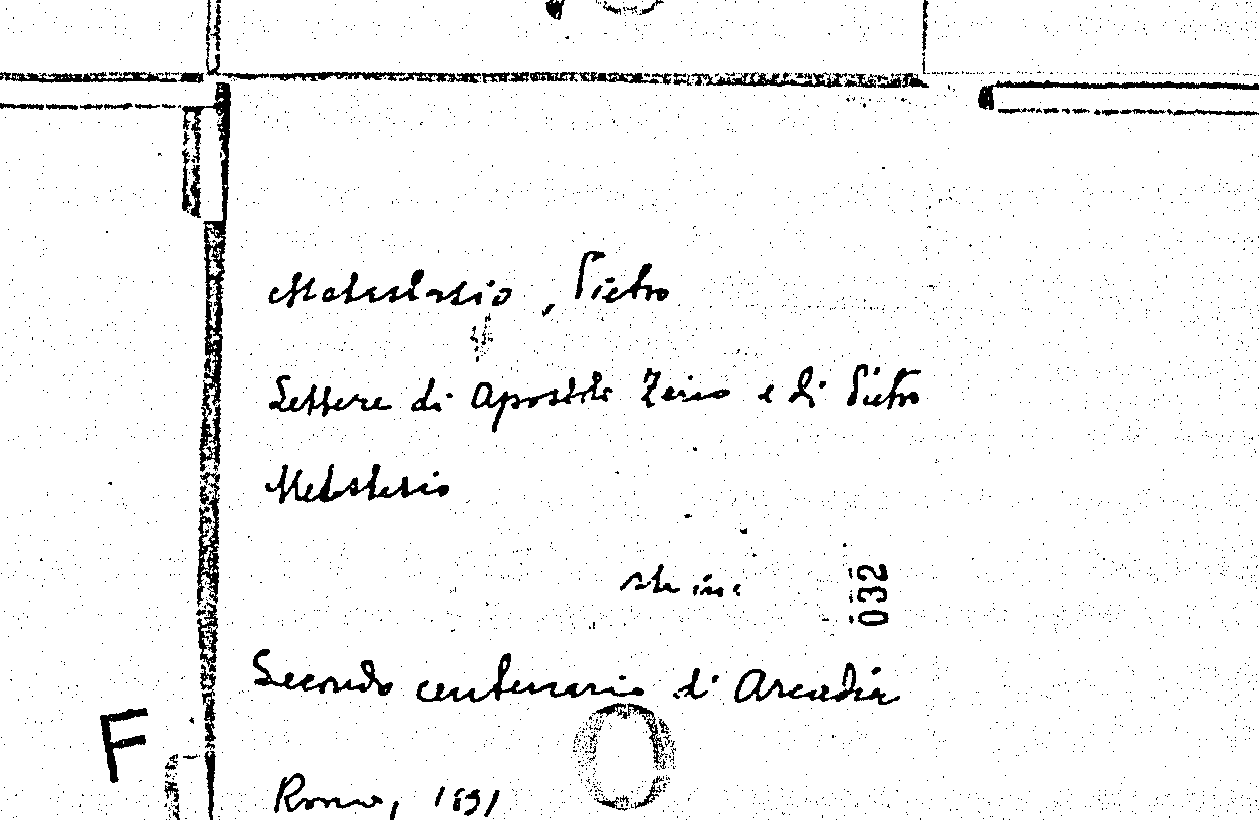 Metastasio, Pietro
Lettere di Apostolo Zeno e di Pietro
Metastasio
sta in:
032
Secondo centenario d'Arcadia
F
Roma, 1891